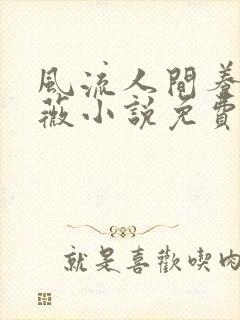 風流人間養
薇小說免費
就是喜歡喫肉